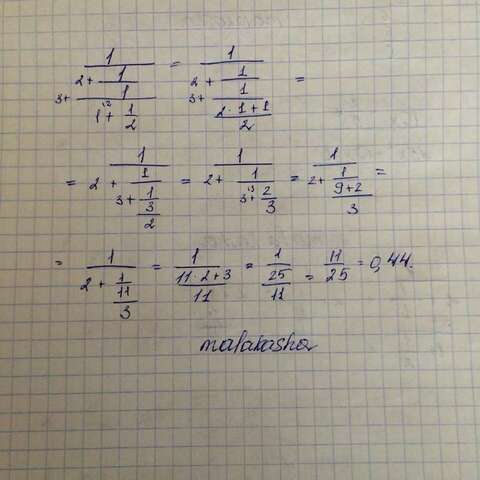 1/(2+1/(3+1/(1+1/2))) = 1/(2+1/(3+1/((2·1+1)/2))) =
= 1/(2+1/(3+1/(3/2))) = 1/(2+1/(3+2/3)) = 1/(2+1/((9+2)/3)) =
= 1/(2+1/(11/3)) = 1/((11·2+3)/11) = 1/(25/11) = 11/25 = 0,44.
malakasha